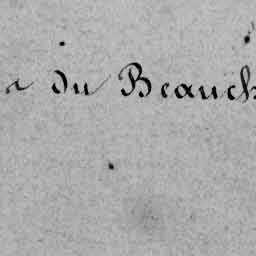 a du Beauch